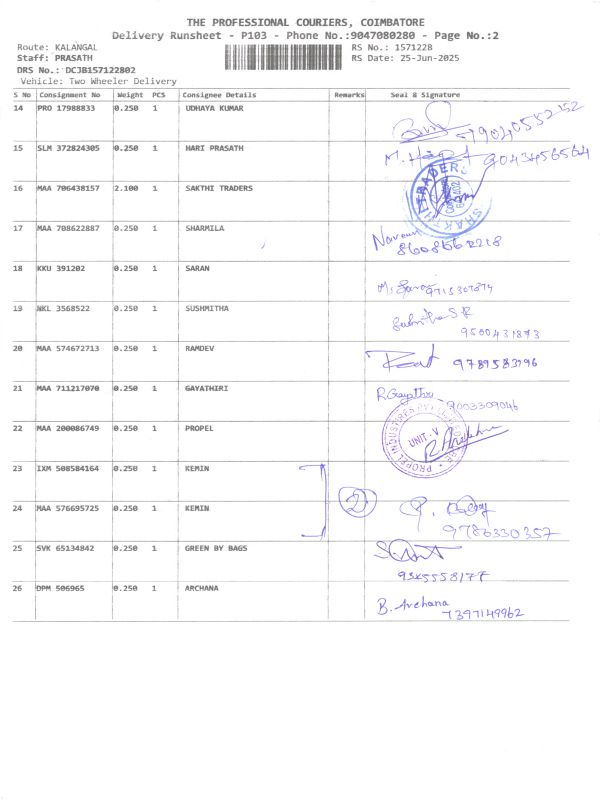 THE PROFESSIONAL COURIERS, COIMBATORE
Delivery Runsheet - P103 - Phone No.:9047080280 - Page No.:2
Route: KALANGAL RS No.: 1571228
Staff: PRASATH RS Date: 25-Jun-2025
DRS No.: DCJB157122802
Vehicle: Two Wheeler Delivery
S No Consignment No Weight PCS Consignee Details Remarks Seal & Signature
14 PRO 17988833 0.250 1 UDHAYA KUMAR
15 SLM 372824305 0.250 1 HARI PRASATH
9043456564
16 MAA 706438157 2.100 1 SAKTHI TRADERS
17 MAA 708622887 0.250 1 SHARMILA Naveen
8608562218
18 KKU 391202 0.250 1 SARAN
9715307874
19 NKL 3568522 0.250 1 SUSHMITHA
9500431873
20 MAA 574672713 0.250 1 RAMDEV 9789583796
21 MAA 711217070 0.250 1 GAYATHIRI R.Gayathri
9003309046
22 MAA 200086749 0.250 1 PROPEL UNIT-V
23 IXM 508584164 0.250 1 KEMIN
24 MAA 576695725 0.250 1 KEMIN 2
9786330357
25 SVK 65134842 0.250 1 GREEN BY BAGS
26 DPM 506965 0.250 1 ARCHANA B. Archana
7397149962